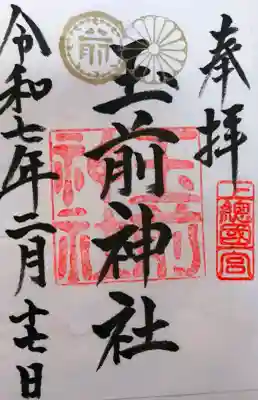 奉拝
上總國一宮
玉前神社
玉前神社
令和七年二月十七日
前